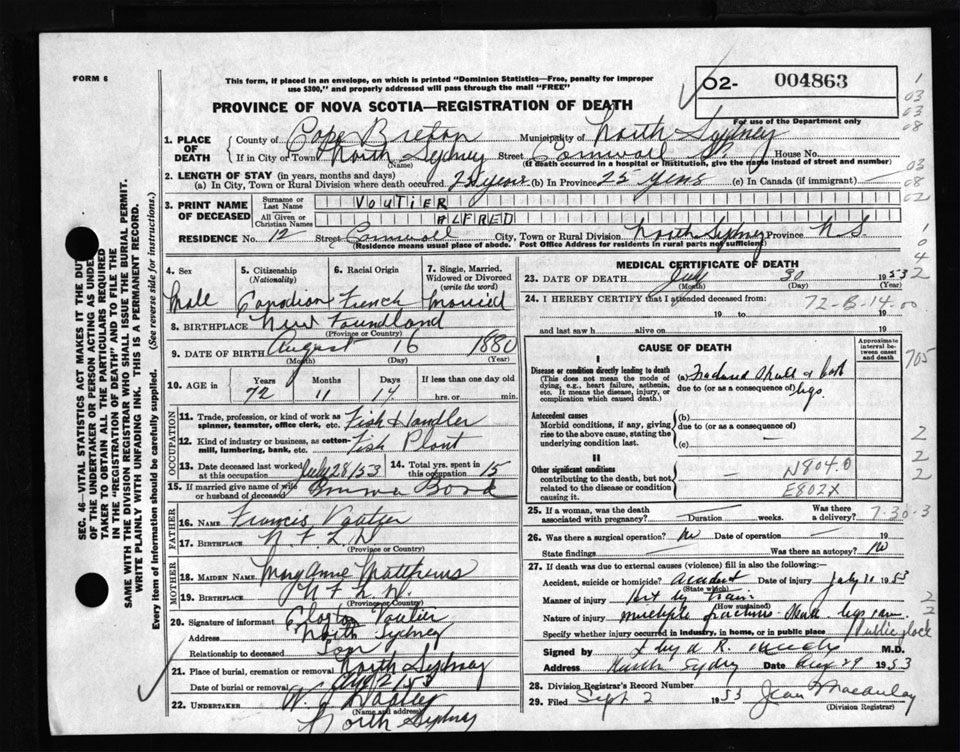 FORM 6
This form, if placed in an envelope, on which is printed "Dominion Statistics—Free, penalty for improper
use $300," and properly addressed will pass through the mail "FREE"
O2- 004863
For use of the Department only
PROVINCE OF NOVA SCOTIA—REGISTRATION OF DEATH
1. PLACE OF DEATH County of Cape Breton Municipality of North Sydney
If in City or Town North Sydney (Name) Street Cornwall St. House No.
(If death occurred in a hospital or institution, give the name instead of street and number)
2. LENGTH OF STAY (in years, months and days)
(a) In City, Town or Rural Division where death occurred 25 years (b) In Province 25 years (c) In Canada (if immigrant)
3. PRINT NAME OF DECEASED Surname or Last Name VOUTIER
All Given or Christian Names ALFRED
RESIDENCE No. 12 Street Cornwall City, Town or Rural Division North Sydney Province N.S.
(Residence means usual place of abode. Post Office Address for residents in rural parts not sufficient)
4. Sex Male
5. Citizenship (Nationality) Canadian
6. Racial Origin French
7. Single, Married, Widowed or Divorced (write the word) Married
8. BIRTHPLACE New Foundland
(Province or Country)
9. DATE OF BIRTH August 16 1880
(Month) (Day) (Year)
10. AGE in Years Months Days If less than one day old
72 11 14 hrs. or min.
OCCUPATION
11. Trade, profession, or kind of work as spinner, teamster, office clerk, etc. Fish Handler
12. Kind of industry or business, as cotton-mill, lumbering, bank, etc. Fish Plant
13. Date deceased last worked at this occupation July 28/53 14. Total yrs. spent in this occupation 15
15. If married give name of wife or husband of deceased Emma
FATHER
16. NAME Francis Voutier
17. BIRTHPLACE N.F.L.D
(Province or Country)
MOTHER
18. MAIDEN NAME Mary Anne Matthews
19. BIRTHPLACE N.F.L.D.
(Province or Country)
20. Signature of informant Voutier
Address North Sydney
Relationship to deceased Son
21. Place of burial, cremation or removal North Sydney
Date of burial or cremation Aug 2/53
22. UNDERTAKER W.
(Name and address)
North Sydney
MEDICAL CERTIFICATE OF DEATH
23. DATE OF DEATH July 30 1953
(Month) (Day) (Year)
24. I HEREBY CERTIFY that I attended deceased from:
72-8-14-00
19 to 19
and last saw h alive on 19
CAUSE OF DEATH
Approximate interval between onset and death
I
Disease or condition directly leading to death
(This does not mean the mode of dying, e.g., heart failure, asthenia, etc. It means the disease, injury, or complication which caused death.)
(a) Fractured skull & both legs.
due to (or as a consequence of)
Antecedent causes
Morbid conditions, if any, giving rise to the above cause, stating the underlying condition last.
(b)
due to (or as a consequence of)
(c)
II
Other significant conditions
contributing to the death, but not related to the disease or condition causing it.
N804.0
E802X
25. If a woman, was the death associated with pregnancy? Duration weeks. Was there a delivery?
7-30-3
26. Was there a surgical operation? No Date of operation 19
State findings Was there an autopsy? No
27. If death was due to external causes (violence) fill in also the following:—
Accident, suicide or homicide? accident Date of injury July 30 1953
(State which)
Manner of injury Hit by train
(How sustained)
Nature of injury multiple fracture skull, legs
Specify whether injury occurred in industry, in home, or in public place Public place
Signed by M.D.
Address North Sydney Date Aug 29 1953
28. Division Registrar's Record Number
29. Filed Sept 2 1953 Jean Macaulay
(Division Registrar)
SEC. 46—VITAL STATISTICS ACT MAKES IT THE DUTY
OF THE UNDERTAKER OR PERSON ACTING AS UNDER-
TAKER TO OBTAIN ALL THE PARTICULARS REQUIRED
IN THE "REGISTRATION OF DEATH" AND TO FILE THE
SAME WITH THE DIVISION REGISTRAR WHO SHALL ISSUE THE BURIAL PERMIT.
WRITE PLAINLY WITH UNFADING INK. THIS IS A PERMANENT RECORD.
Every item of information should be carefully supplied. (See reverse side for instructions.)
1
03
03
08
03
08
02
1
0
4
2
705
2
2
2
2
2